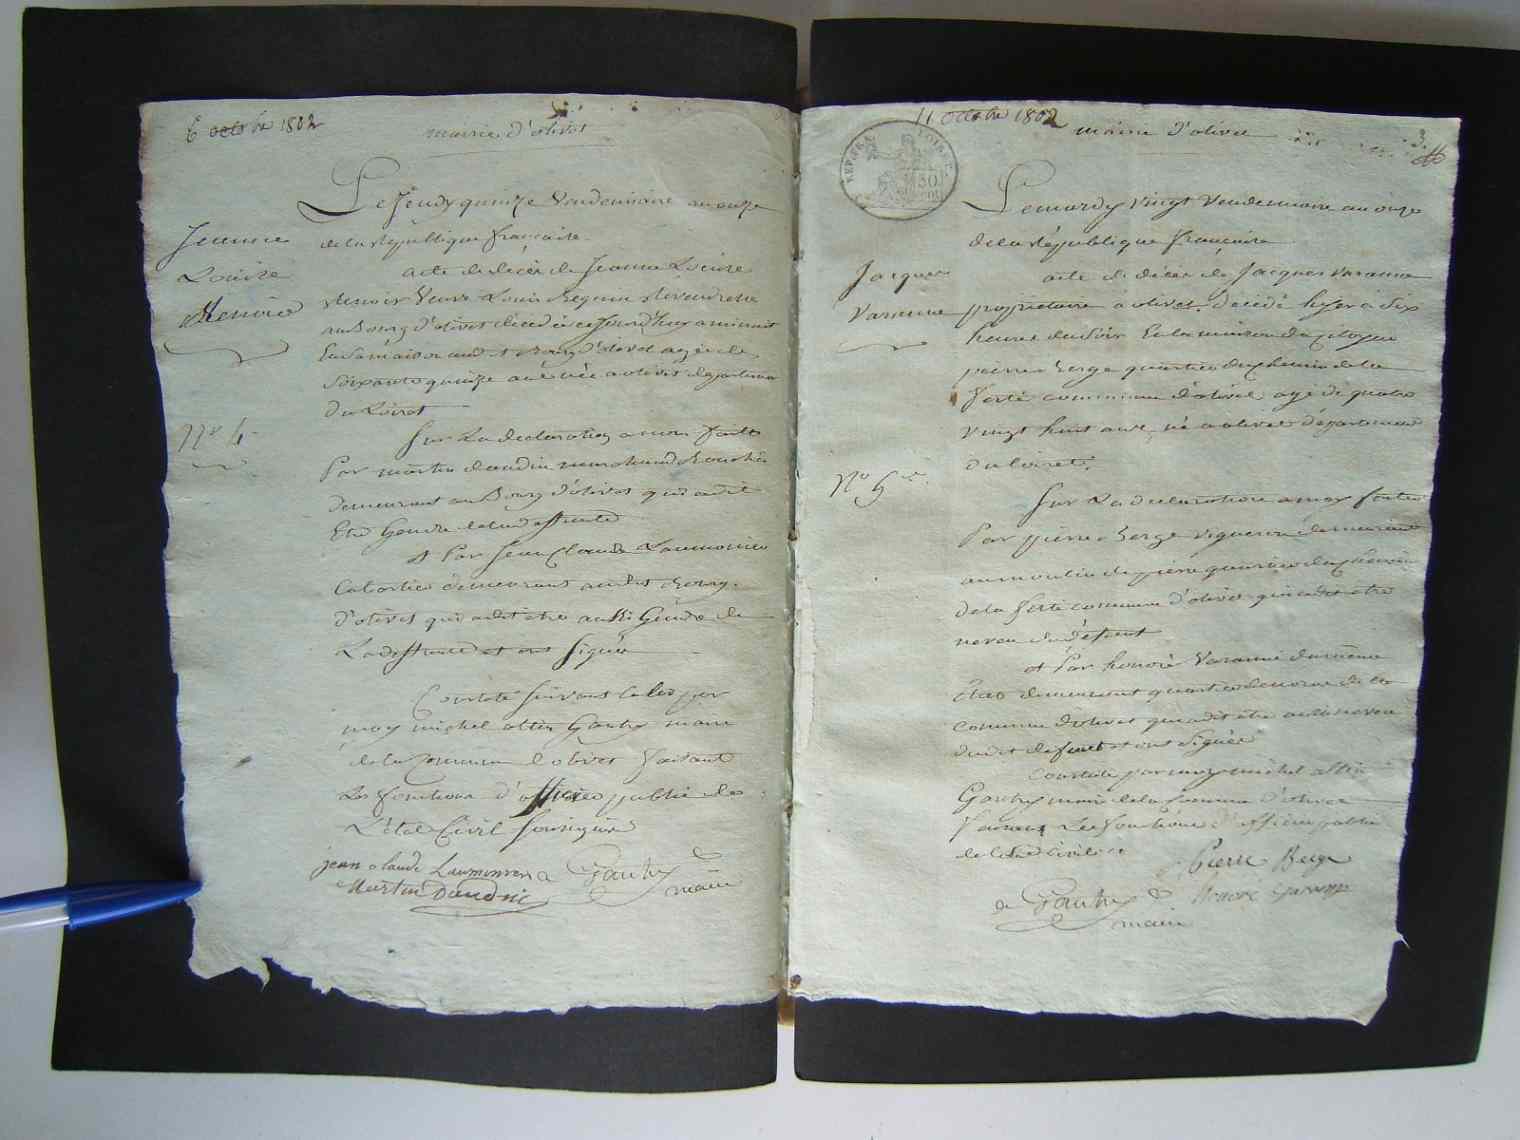 6 octobre 1802
mairie d'olivet
Le Jeudy quinze Vendemiaire an onze
de la république française
Jeanne
Louise
Menoire
acte de décès de Jeanne Louise
Veuve Louis
au Bourg d'olivet décédée ce jourd'huy a minuit
En sa maison audit Bourg d'olivet agée de
soixante quinze ans née a olivet departement
du Loiret
No 4
Sur La declaration a moi faite
Par martin daudin marchand
demeurant au Bourg d'olivet qui a dit
Etre Gendre de la deffunte
et Par Jean Claude Laumonier
demeurant audit Bourg
d'olivet qui a dit etre aussi Gendre de
La deffunte et ont signé
Constaté suivant la loi par
moy michel altin Gautry maire
de la Commune d'olivet faisant
Les fonctions d'officier public de
L'état Civil soussigné
jean claude Laumonier
Martin Daudin
Gautry
maire
11 octobre 1802
mairie d'olivet
3.
REP. FRA.
50
Le mardy vingt Vendemiaire an onze
de la république française
Jacques
Varanne
acte de décès de Jacques Varanne
propriétaire a olivet, décédé hyer a dix
heures du soir En la maison du citoyen
pierre Berge quartier du chemin de la
ferté commune d'olivet agé de quatre
vingt huit ans, né a olivet département
du loiret.
No 5
Sur La declaration a moy faite
Par pierre Berge vigneron demeurant
au moulin de pierre quartier du chemin
de la ferté commune d'olivet qui a dit etre
neveu du défunt
et Par honoré Varanne du même
état demeurant quartier de la
commune d'olivet qui a dit etre aussi neveu
dudit defunt et ont signé
Constaté par moy michel altin
Gautry maire de la Commune d'olivet
faisant Les fonctions d'officier public
de l'état civil
Pierre Berge
honoré Varanne
Gautry
maire